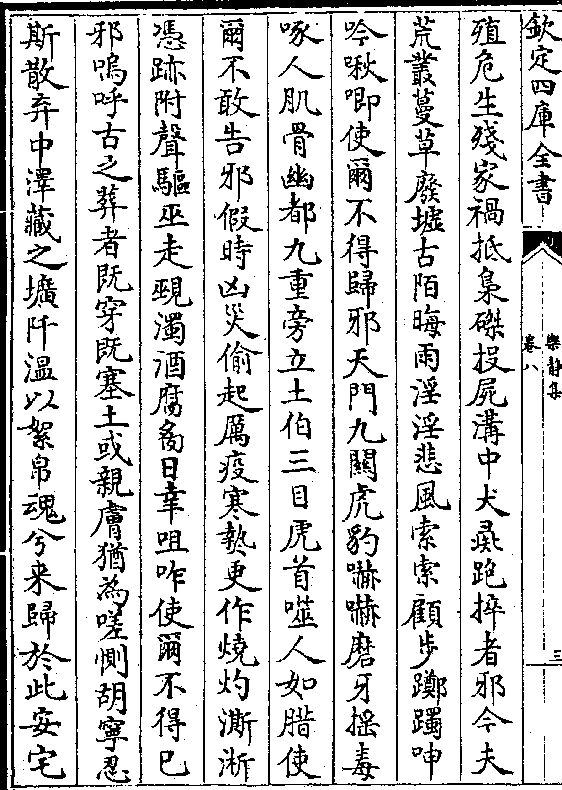 欽定四庫全書
樂靜集
卷八
三
殖危生殘家禍抵梟磔投屍溝中犬彘跑捽者邪今夫
荒叢蔓草廢墟古陌晦雨淫淫悲風索索顧步躑躅呻
吟啾唧使爾不得歸邪天門九關虎豹嚇嚇磨牙摇毒
啄人肌骨幽都九重旁立土伯三目虎首噬人如腊使
爾不敢告邪假時凶災偷起厲疫寒熱更作燒灼澌淅
憑跡附聲驅巫走覡濁酒腐臠日幸咀咋使爾不得已
邪嗚呼古之葬者既穿既塞土或親膚猶為嗟惻胡寧忍
斯散弃中澤藏之壙阡溫以絮帛魂兮来歸於此安宅